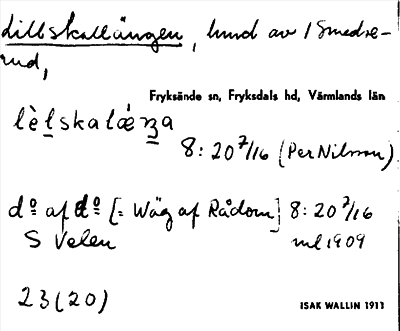 Lillskallängen, hund av 1 Smedse-
rud,
Fryksände sn, Fryksdals hd, Värmlands län
lèl skalǽŋa
8: 20 7/16 (Per Nilsson)
dº af dº [: Wäg af Rådom] 8: 20 7/16
S Velen ml 1909
23 (20)
ISAK WALLIN 1911